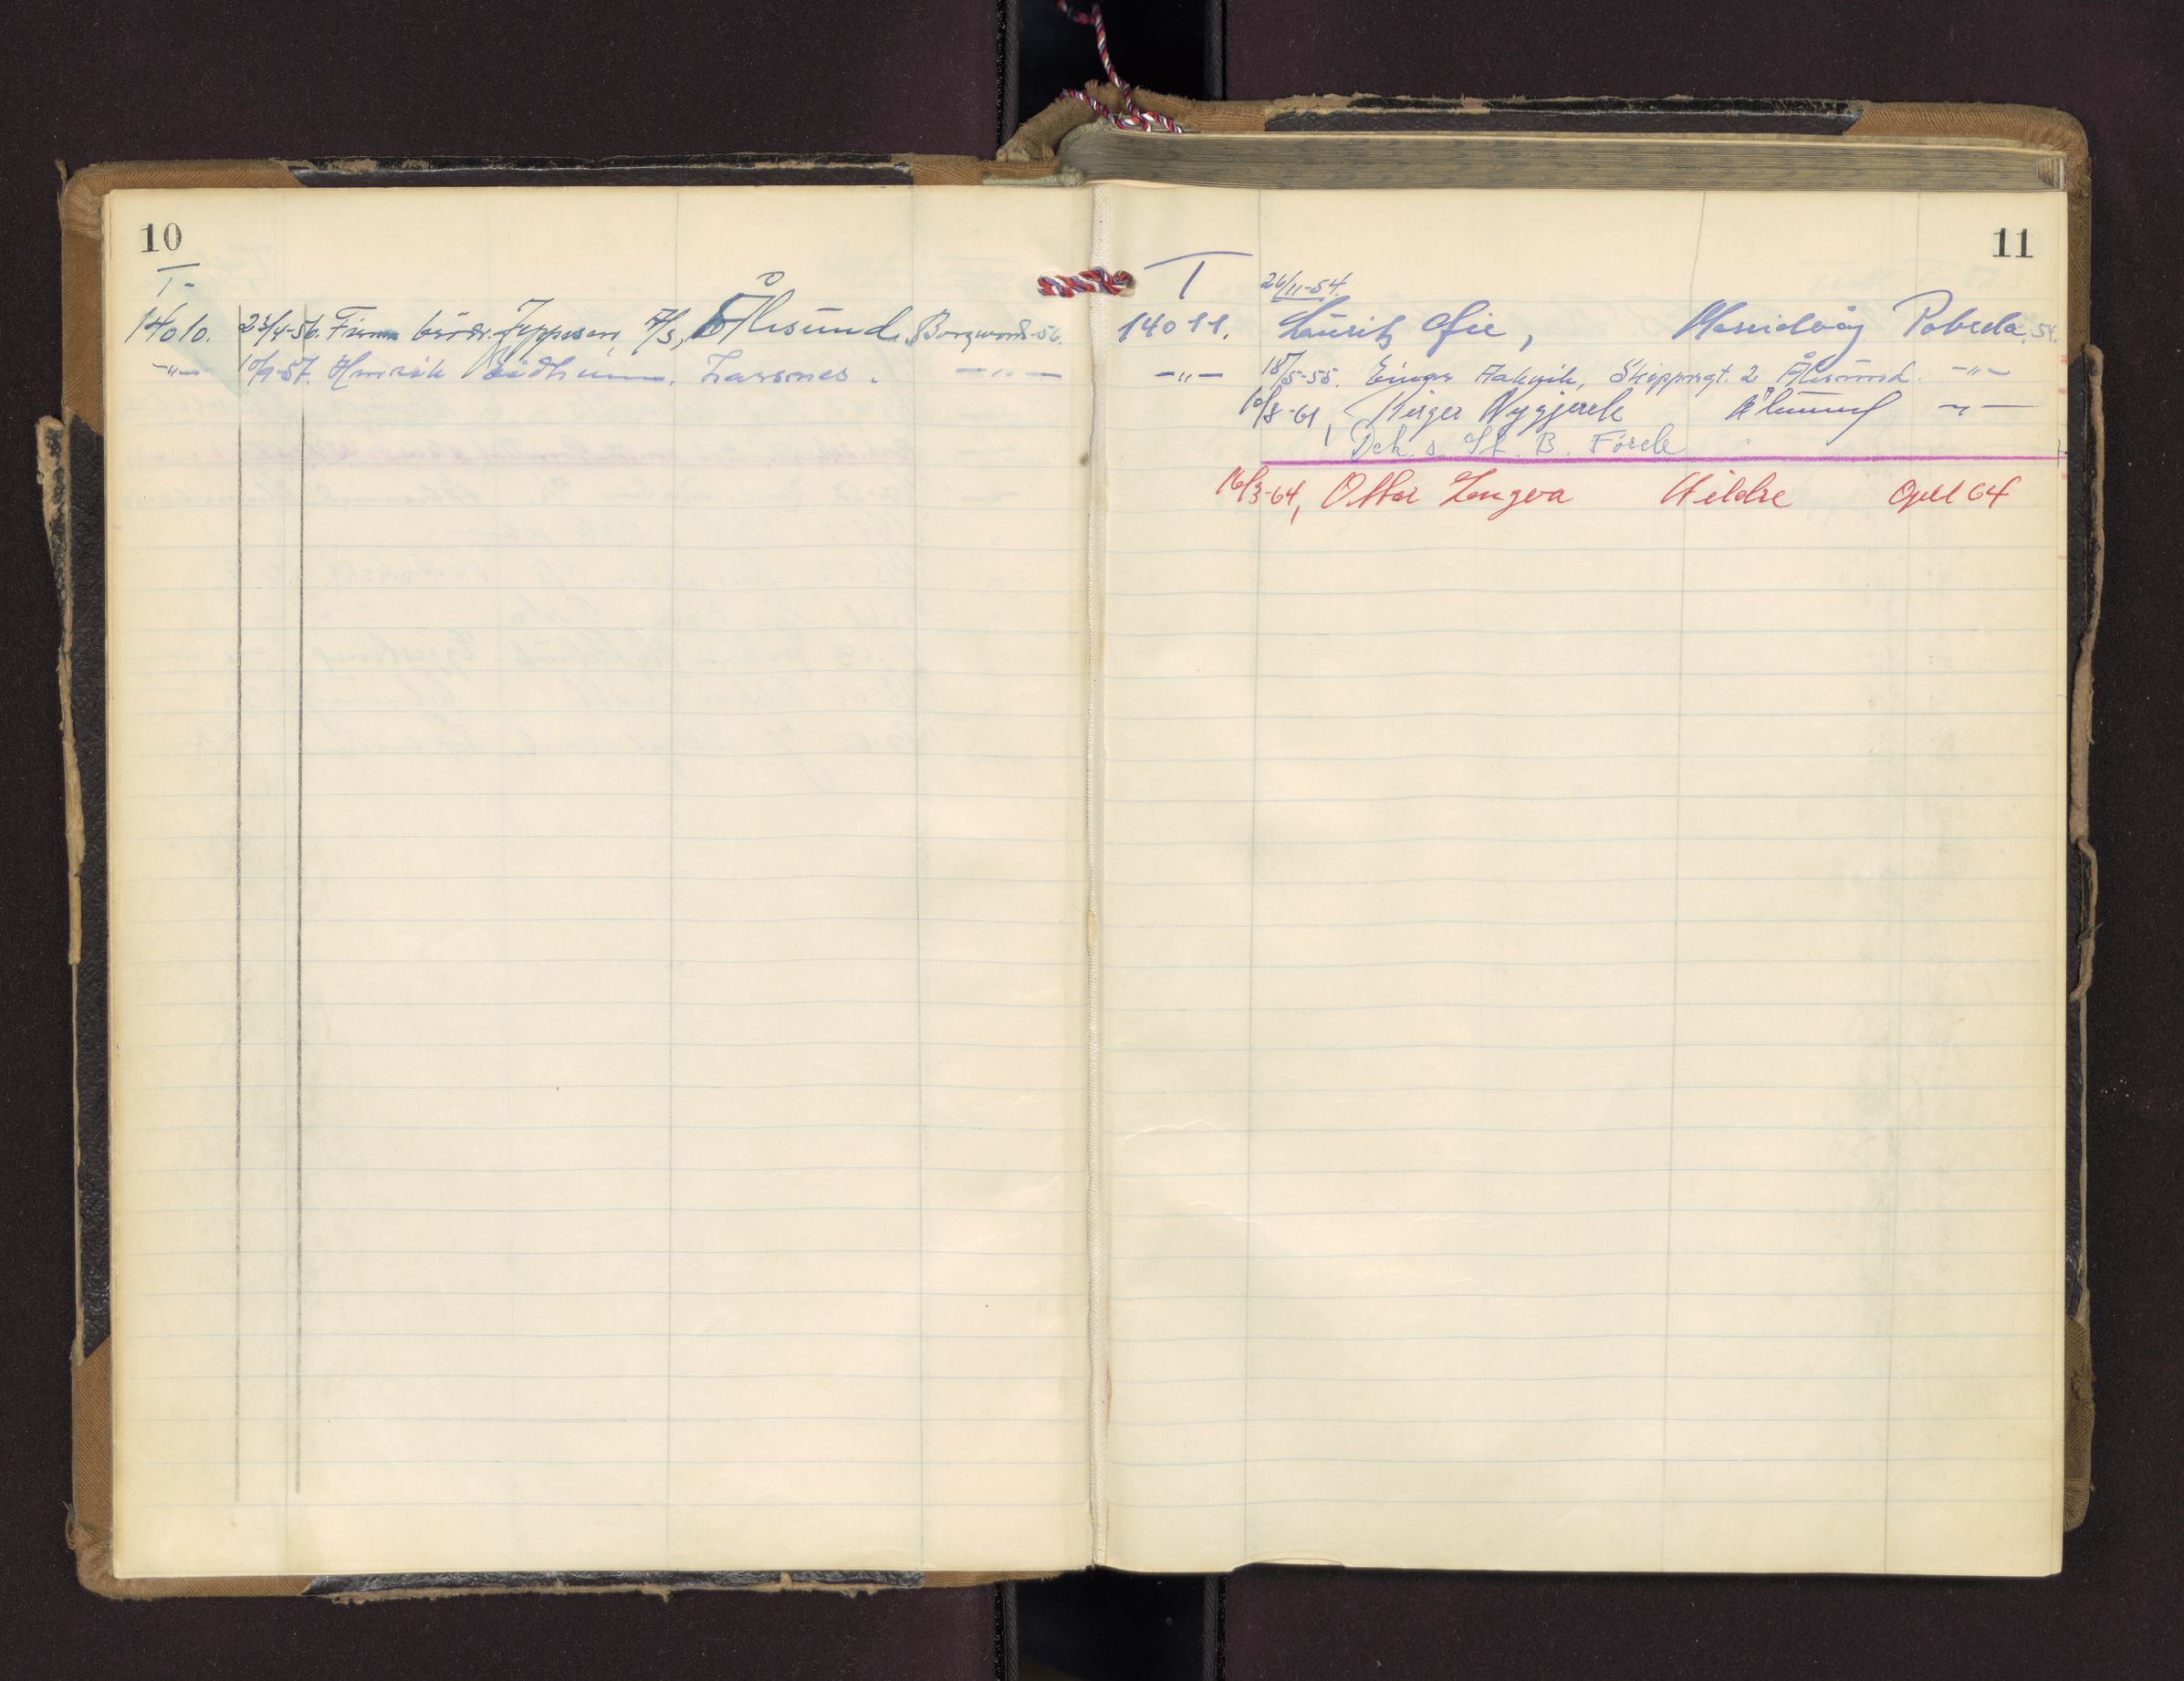 10
T-
14010. 23/4-56. Firma brødr. Jeppesen A/S, Ålesund. Borgward-56.
-"- 10/9-57. Henrik Eidheim. Larsnes. -"-
11
T 26/11-54.
14011. Lauritz Gie, Massidvåg Pobeda. 54.
-"- 18/5-55. Einar Aakvik, Skippergt. 2 Ålesund. -"-
10/8-61, Birger Nygjerde Ålesund -"-
Dek. s. St. B. Förde
16/3-64, Ottar Longva Hildre Opel 64